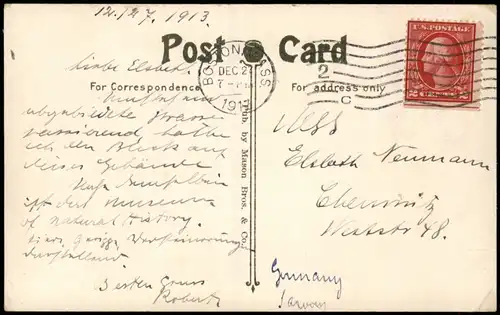 12./27. 1913.
Post Card
Liebe Elsbeth.
BOSTON, MASS
DEC 2
7-PM
1913
2
C
U.S. POSTAGE
2 CENTS 2
For Correspondence
For address only
abgebildete Strasse
passierend hatte
ich den Blick auf
dieses Gebäude
ist das Museum
of natural History.
Besten Gruss
Robert
Pub. by Mason Bros. & Co.
Miss
Elsbeth Neumann
Chemnitz
Weststr 48.
Germany
Saxony